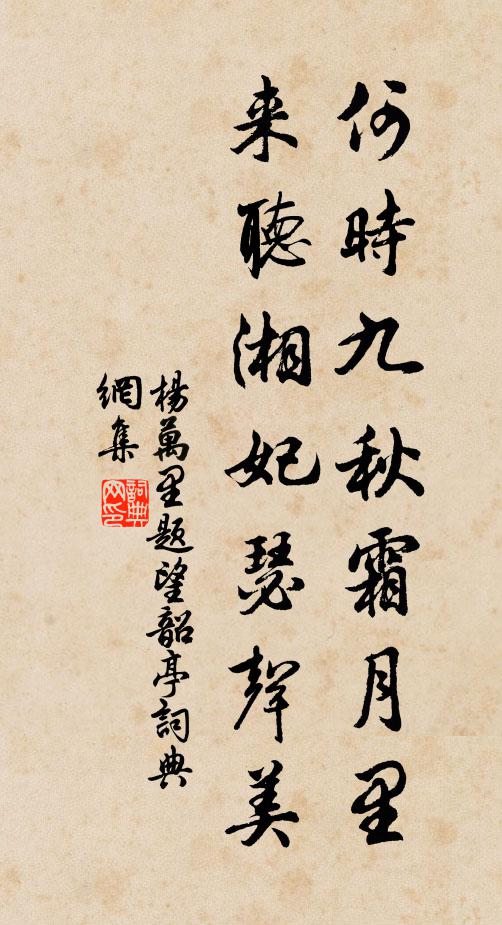 何時九秋霜月里
来聽湘妃瑟聲美
楊萬里題望韶亭詞典
網集
詞典
网印